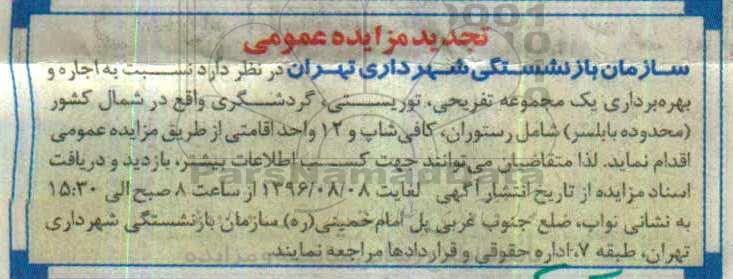 تجدید مزایده عمومی
سازمان بازنشستگی شهرداری تهران در نظر دارد نسبت به اجاره و
بهره‌برداری یک مجموعه تفریحی، توریستی، گردشگری واقع در شمال کشور
(محدوده بابلسر) شامل رستوران، کافی‌شاپ و ۱۲ واحد اقامتی از طریق مزایده عمومی
اقدام نماید. لذا متقاضیان می‌توانند جهت کسب اطلاعات بیشتر، بازدید و دریافت
اسناد مزایده از تاریخ انتشار آگهی لغایت ۱۳۹۶/۰۸/۰۸ از ساعت ۸ صبح الی ۱۵:۳۰
به نشانی نواب، ضلع جنوب غربی پل امام خمینی(ره) سازمان بازنشستگی شهرداری
تهران، طبقه ۷، اداره حقوقی و قراردادها مراجعه نمایند.
ParsNamadData